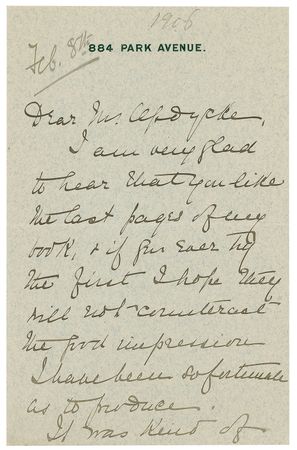 1906
Feb. 8th
884 PARK AVENUE.
Dear Mr. Updycke,
I am very glad
to hear that you like
the last pages of my
book, & if you ever try
the first I hope they
will not counteract
the good impression
I have been so fortunate
as to produce.
It was kind of